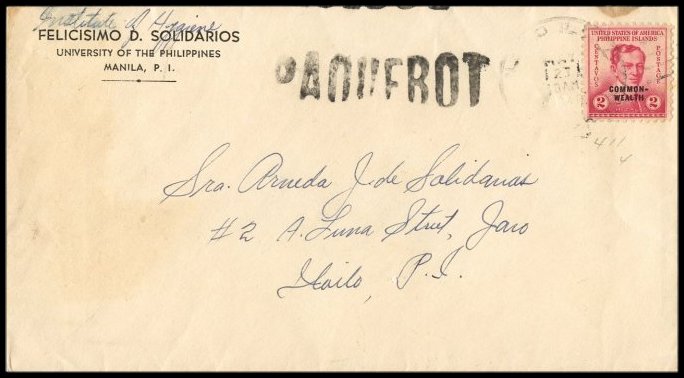 Institute of Hygiene
FELICISIMO D. SOLIDARIOS
UNIVERSITY OF THE PHILIPPINES
MANILA, P. I.
PAQUEBOT
UNITED STATES OF AMERICA
PHILIPPINE ISLANDS
CENTAVOS
POSTAGE
COMMON-
WEALTH
2 2
411
4
Sra. Arneda J. de Solidarios
#2 A. Luna Street, Jaro
Iloilo, P.I.